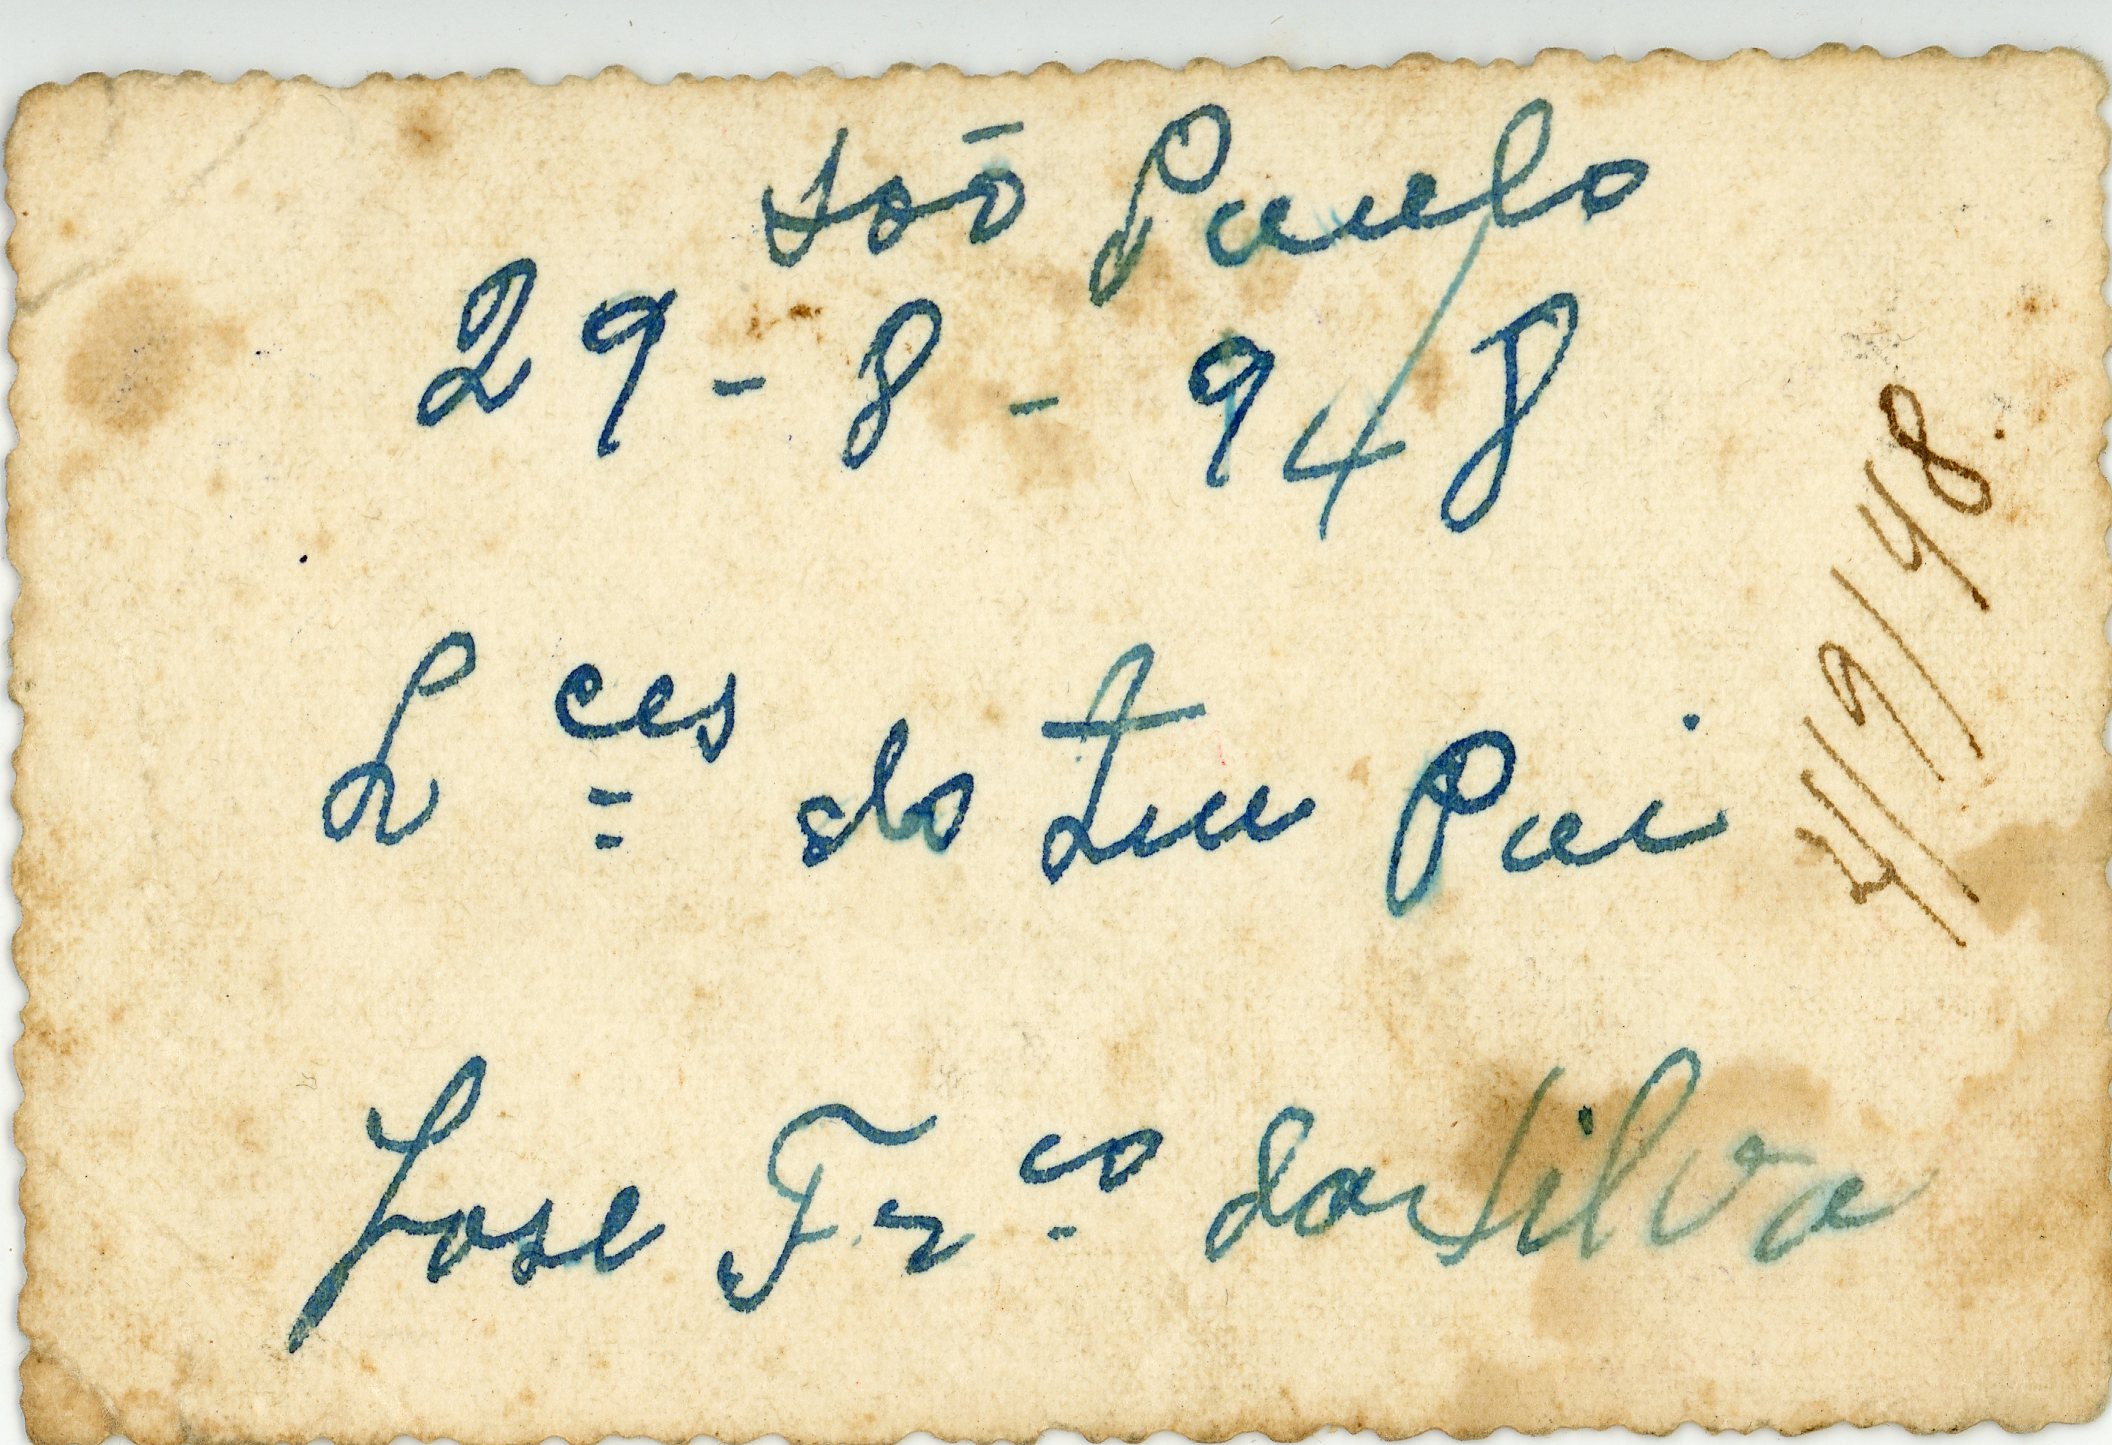 São Paulo
29-8-948
L ces do teu Pai
Jose Frco da Silva